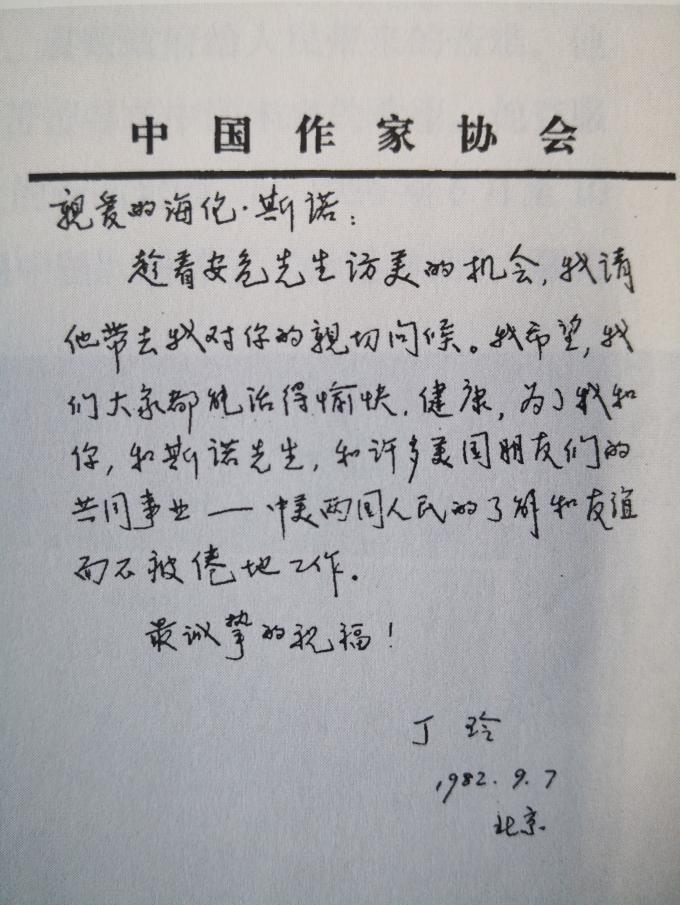 中国作家协会
亲爱的海伦·斯诺：
趁着安危先生访美的机会，我请
他带去我对你的亲切问候。我希望，我
们大家都能活得愉快、健康，为了我和
你，和斯诺先生，和许多美国朋友们的
共同事业——中美两国人民的了解和友谊
而不疲倦地工作。
最诚挚的祝福！
丁玲
1982.9.7
北京